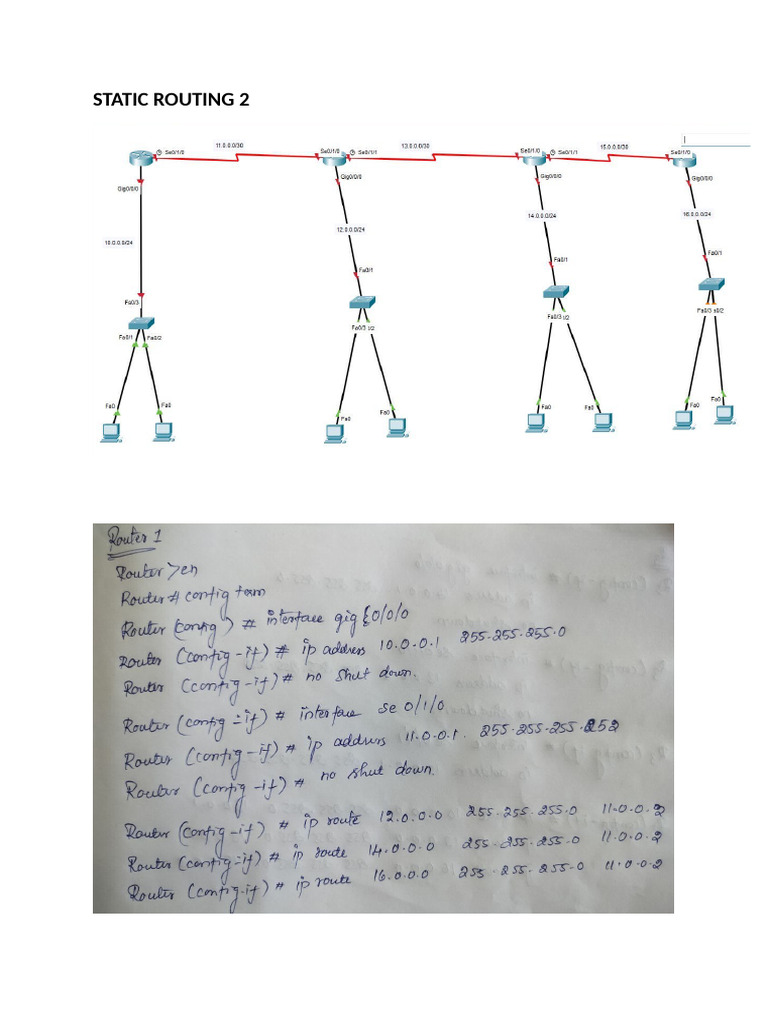 STATIC ROUTING 2
11.0.0.0/30
13.0.0.0/30
15.0.0.0/30
Se0/1/0
Se0/1/0
Se0/1/1
Se0/1/0
Se0/1/1
Se0/1/0
Gig0/0/0
Gig0/0/0
Gig0/0/0
Gig0/0/0
10.0.0.0/24
12.0.0.0/24
14.0.0.0/24
16.0.0.0/24
Fa0/3
Fa0/1
Fa0/1
Fa0/1
Fa0/1
Fa0/2
Fa0/3
Fa0/3
Fa0/3
Fa0
Fa0
Fa0
Fa0
Fa0
Fa0
Fa0
Fa0
Router 1
Router>en
Router # config term
Router (config) # interface gig 0/0/0
Router (config-if) # ip address 10.0.0.1 255.255.255.0
Router (config-if) # no shut down.
Router (config-if) # interface se 0/1/0
Router (config-if) # ip address 11.0.0.1. 255.255.255.252
Router (config-if) # no shut down.
Router (config-if) # ip route 12.0.0.0 255.255.255.0 11.0.0.2
Router (config-if) # ip route 14.0.0.0 255.255.255.0 11.0.0.2
Router (config-if) # ip route 16.0.0.0 255.255.255.0 11.0.0.2